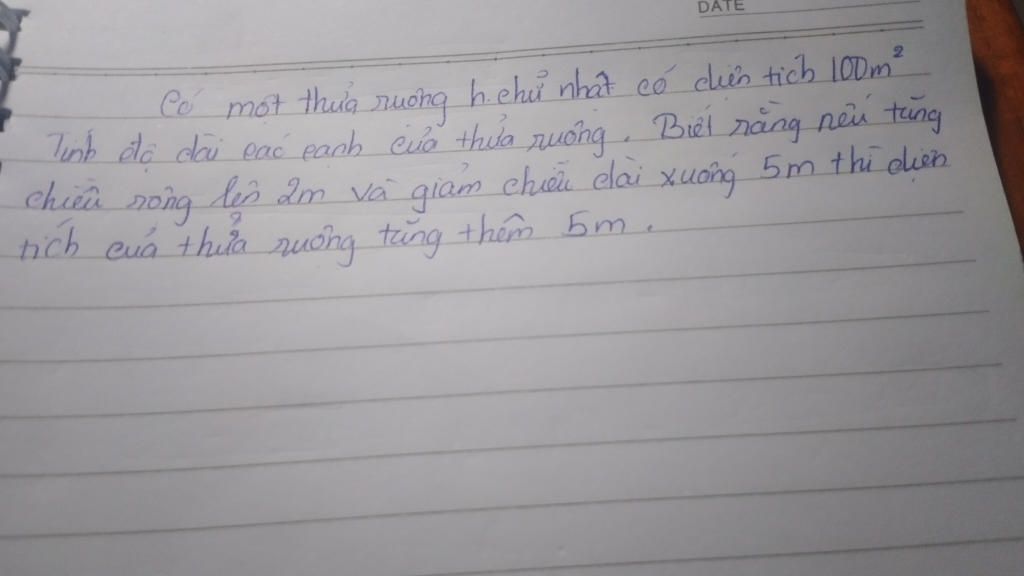 DATE
Có một thửa ruộng h.chữ nhật có diện tích 100m²
Tính độ dài các cạnh của thửa ruộng. Biết rằng nếu tăng
chiều rộng lên 2m và giảm chiều dài xuống 5m thì diện
tích của thửa ruộng tăng thêm 5m.